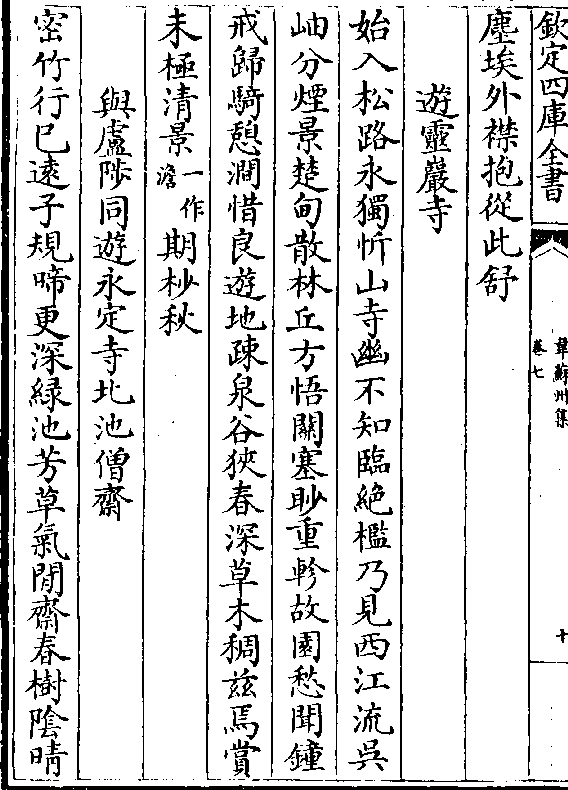 欽定四庫全書
韋蘇州集
卷七
十
塵埃外襟抱從此舒
遊靈巖寺
始入松路永獨忻山寺幽不知臨絶檻乃見西江流吳
岫分煙景楚甸散林丘方悟關塞眇重軫故園愁聞鐘
戒歸騎憩澗惜良遊地疎泉谷狹春深草木稠兹焉賞
未極清景一作澹期杪秋
與盧陟同遊永定寺北池僧齋
密竹行已遠子規啼更深緑池芳草氣閒齋春樹陰晴